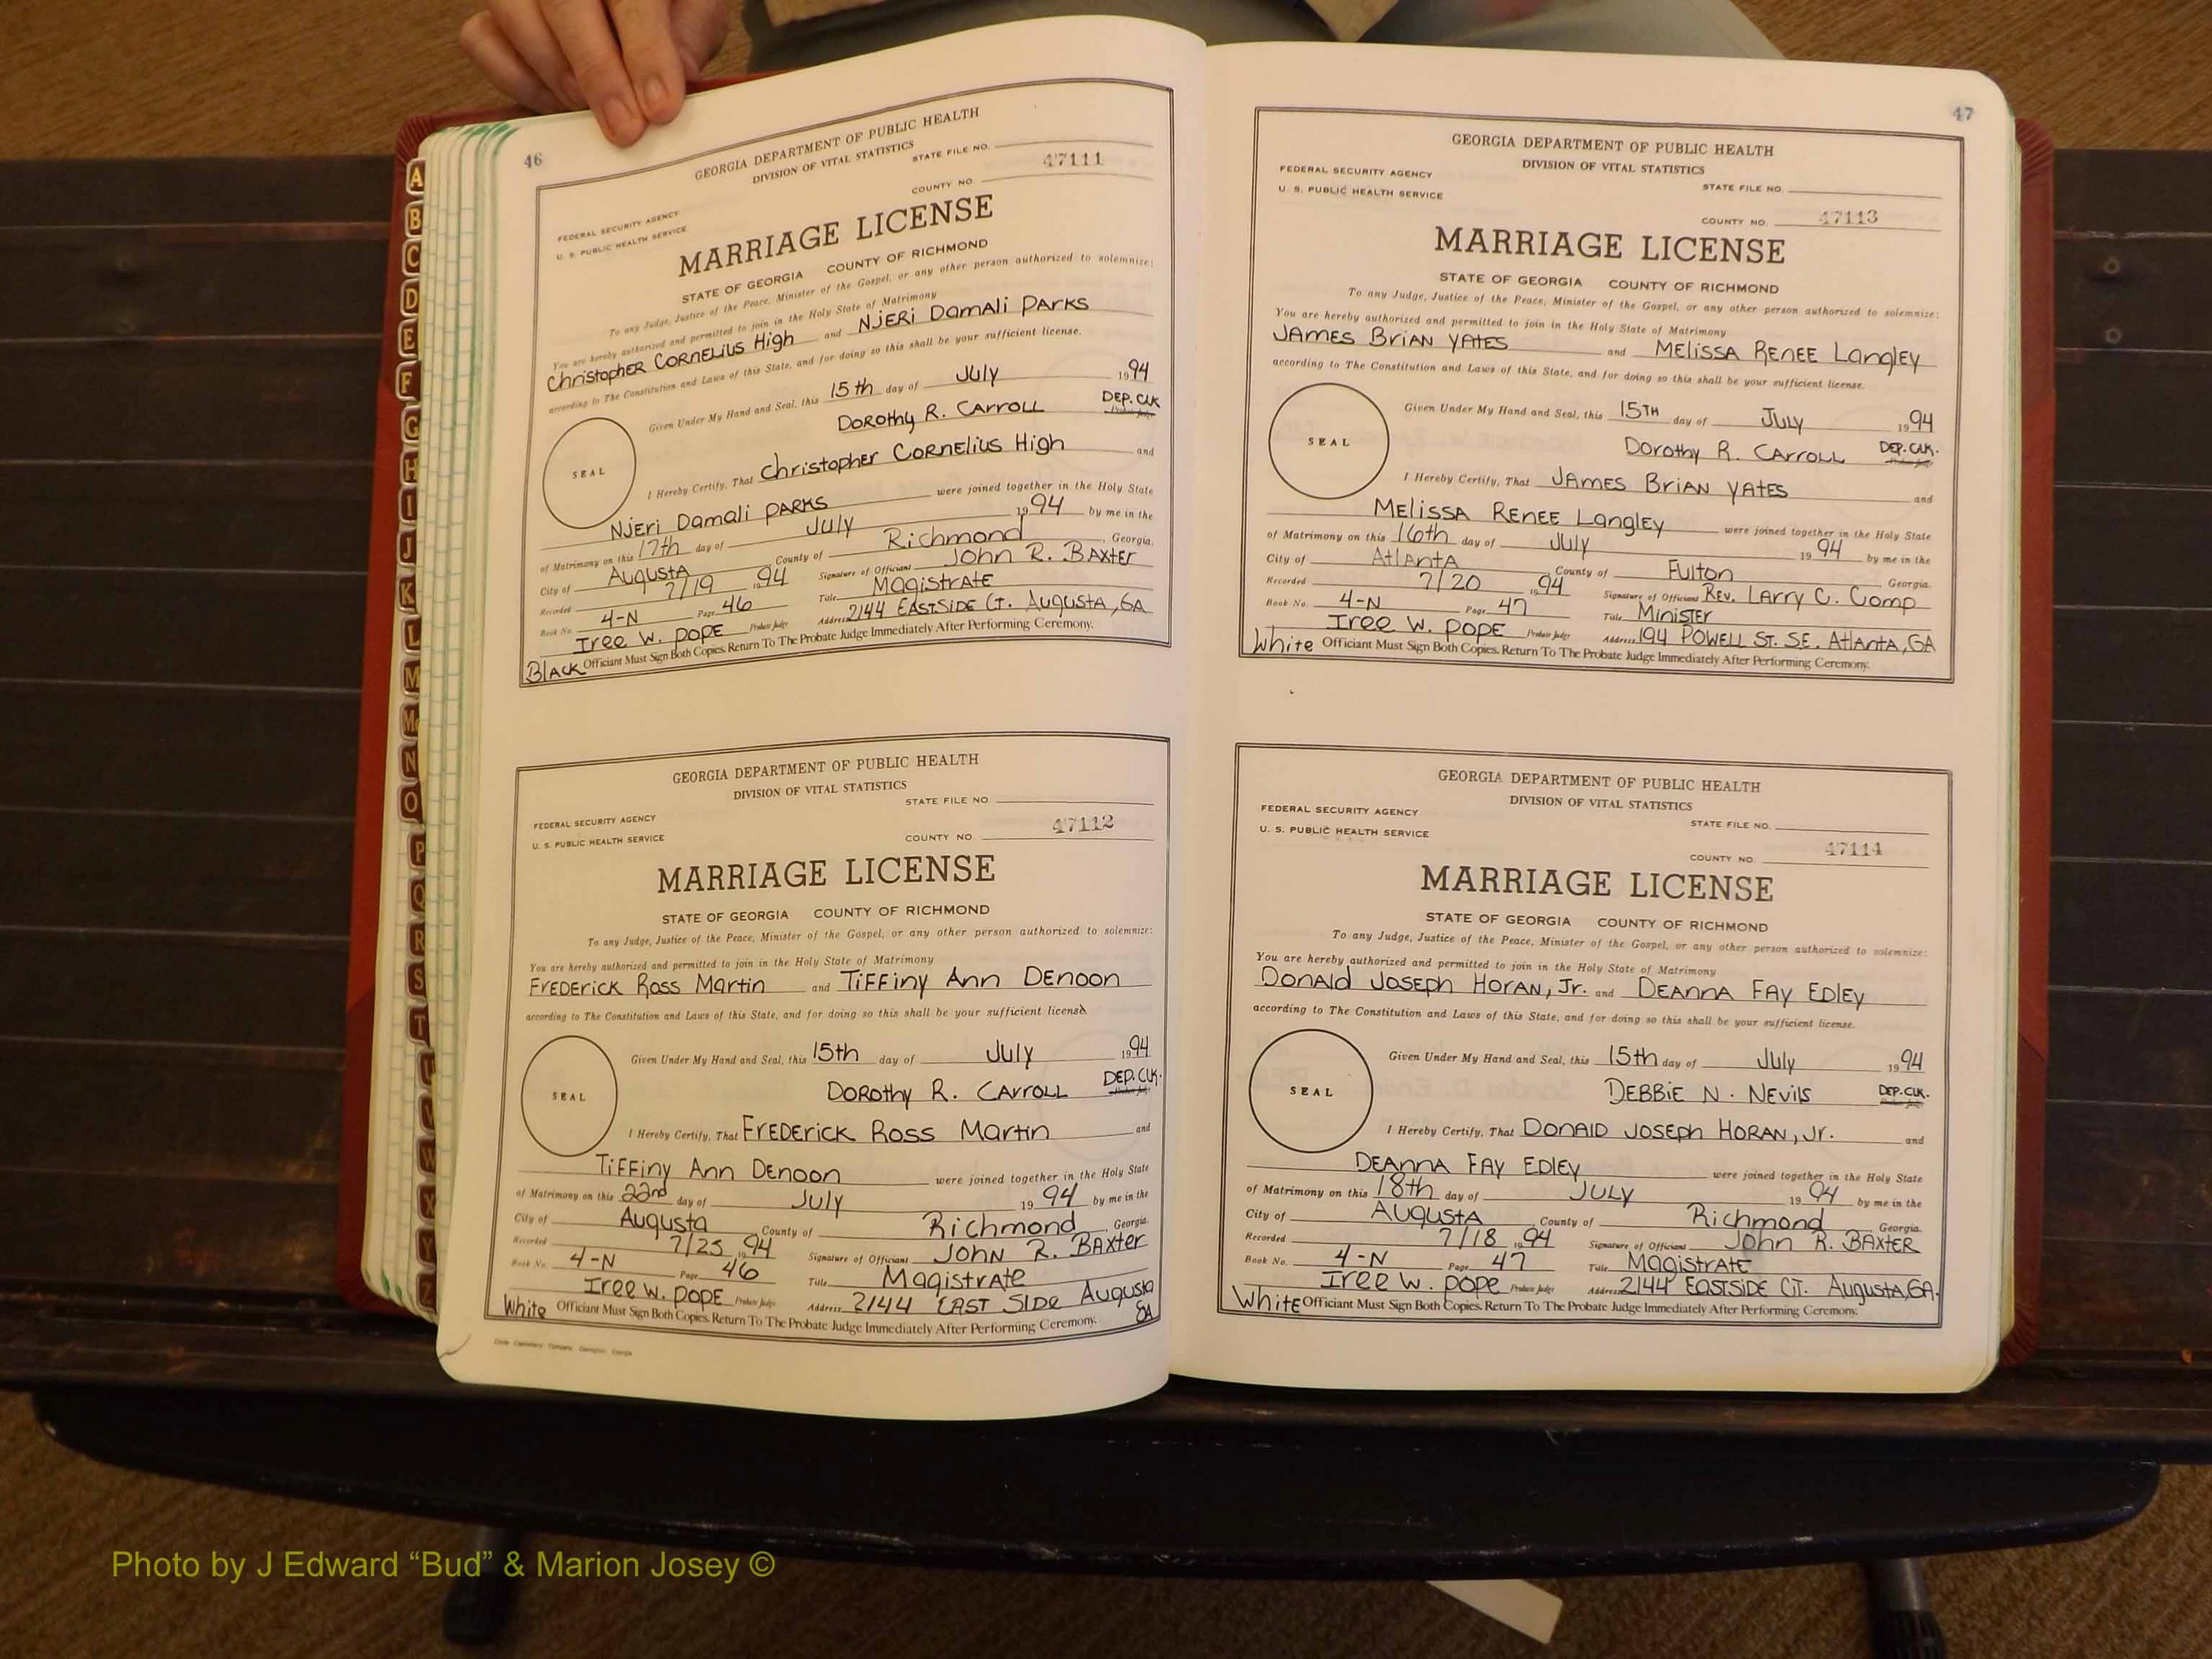 46
GEORGIA DEPARTMENT OF PUBLIC HEALTH
DIVISION OF VITAL STATISTICS
STATE FILE NO.
FEDERAL SECURITY AGENCY
U. S. PUBLIC HEALTH SERVICE
COUNTY NO. 47111
MARRIAGE LICENSE
STATE OF GEORGIA COUNTY OF RICHMOND
To any Judge, Justice of the Peace, Minister of the Gospel, or any other person authorized to solemnize:
You are hereby authorized and permitted to join in the Holy State of Matrimony
Christopher Cornelius High and Njeri Damali Parks
according to The Constitution and Laws of this State, and for doing so this shall be your sufficient license.
Given Under My Hand and Seal, this 15th day of July 1994
Dorothy R. Carroll DEP. CLK
SEAL
I Hereby Certify, That Christopher Cornelius High and
Njeri Damali Parks were joined together in the Holy State
of Matrimony on this 17th day of July 1994 by me in the
City of Augusta County of Richmond, Georgia.
Recorded 7/19 1994 Signature of Officiant John R. Baxter
Book No. 4-N Page 46 Title Magistrate
Iree W. Pope Probate Judge Address 2144 Eastside Ct. Augusta, GA
Black Officiant Must Sign Both Copies. Return To The Probate Judge Immediately After Performing Ceremony.
GEORGIA DEPARTMENT OF PUBLIC HEALTH
DIVISION OF VITAL STATISTICS
STATE FILE NO.
FEDERAL SECURITY AGENCY
U. S. PUBLIC HEALTH SERVICE
COUNTY NO. 47112
MARRIAGE LICENSE
STATE OF GEORGIA COUNTY OF RICHMOND
To any Judge, Justice of the Peace, Minister of the Gospel, or any other person authorized to solemnize:
You are hereby authorized and permitted to join in the Holy State of Matrimony
Frederick Ross Martin and Tiffiny Ann Denoon
according to The Constitution and Laws of this State, and for doing so this shall be your sufficient license
Given Under My Hand and Seal, this 15th day of July 1994
Dorothy R. Carroll DEP. CLK.
SEAL
I Hereby Certify, That Frederick Ross Martin and
Tiffiny Ann Denoon were joined together in the Holy State
of Matrimony on this 22nd day of July 1994 by me in the
City of Augusta County of Richmond, Georgia.
Recorded 7/25 1994 Signature of Officiant John R. Baxter
Book No. 4-N Page 46 Title Magistrate
Iree W. Pope Probate Judge Address 2144 East Side Augusta GA
White Officiant Must Sign Both Copies. Return To The Probate Judge Immediately After Performing Ceremony.
47
GEORGIA DEPARTMENT OF PUBLIC HEALTH
DIVISION OF VITAL STATISTICS
FEDERAL SECURITY AGENCY
U. S. PUBLIC HEALTH SERVICE
STATE FILE NO.
COUNTY NO. 47113
MARRIAGE LICENSE
STATE OF GEORGIA COUNTY OF RICHMOND
To any Judge, Justice of the Peace, Minister of the Gospel, or any other person authorized to solemnize:
You are hereby authorized and permitted to join in the Holy State of Matrimony
James Brian Yates and Melissa Renee Langley
according to The Constitution and Laws of this State, and for doing so this shall be your sufficient license.
Given Under My Hand and Seal, this 15TH day of July 1994
Dorothy R. Carroll DEP. CLK.
SEAL
I Hereby Certify, That James Brian Yates and
Melissa Renee Langley were joined together in the Holy State
of Matrimony on this 16th day of July 1994 by me in the
City of Atlanta County of Fulton, Georgia.
Recorded 7/20 1994 Signature of Officiant Rev. Larry C. Comp
Book No. 4-N Page 47 Title Minister
Iree W. Pope Probate Judge Address 194 Powell St. S.E. Atlanta, GA
White Officiant Must Sign Both Copies. Return To The Probate Judge Immediately After Performing Ceremony.
GEORGIA DEPARTMENT OF PUBLIC HEALTH
DIVISION OF VITAL STATISTICS
FEDERAL SECURITY AGENCY
U. S. PUBLIC HEALTH SERVICE
STATE FILE NO.
COUNTY NO. 47114
MARRIAGE LICENSE
STATE OF GEORGIA COUNTY OF RICHMOND
To any Judge, Justice of the Peace, Minister of the Gospel, or any other person authorized to solemnize:
You are hereby authorized and permitted to join in the Holy State of Matrimony
Donald Joseph Horan, Jr. and Deanna Fay Edley
according to The Constitution and Laws of this State, and for doing so this shall be your sufficient license.
Given Under My Hand and Seal, this 15th day of July 1994
Debbie N. Nevils DEP. CLK.
SEAL
I Hereby Certify, That Donald Joseph Horan, Jr. and
Deanna Fay Edley were joined together in the Holy State
of Matrimony on this 18th day of July 1994 by me in the
City of Augusta County of Richmond, Georgia.
Recorded 7/18 1994 Signature of Officiant John R. Baxter
Book No. 4-N Page 47 Title Magistrate
Iree W. Pope Probate Judge Address 2144 Eastside Ct. Augusta, GA.
White Officiant Must Sign Both Copies. Return To The Probate Judge Immediately After Performing Ceremony.
A
B
C
D
E
F
G
H
I
J
K
L
M
Mc
N
O
P
Q
R
S
T
U
V
W
X
Y
Z
Photo by J Edward “Bud” & Marion Josey ©